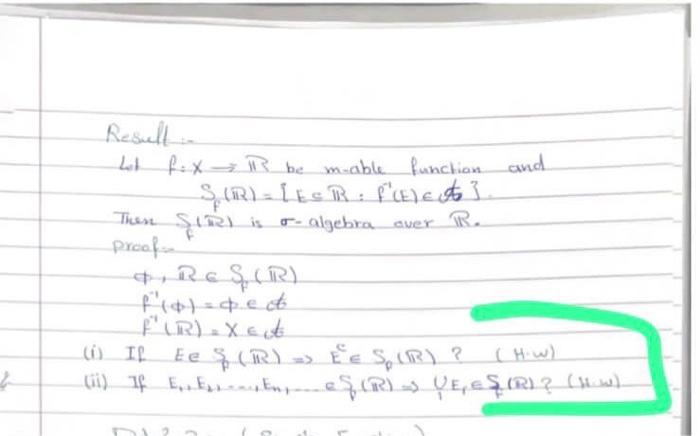 Result :-
Let f: X → ℝ be m-able function and
S_f(ℝ) = [E ⊆ ℝ : f⁻¹(E) ∈ 𝒜].
Then S_f(ℝ) is σ-algebra over ℝ.
proof:-
ϕ, ℝ ∈ S_f(ℝ)
f⁻¹(ϕ) = ϕ ∈ 𝒜
f⁻¹(ℝ) = X ∈ 𝒜
(i) If E ∈ S_f(ℝ) ⇒ Eᶜ ∈ S_f(ℝ) ? (H.w)
(ii) If E₁, E₂, ..., Eₙ, ... ∈ S_f(ℝ) ⇒ ⋃E_i ∈ S_f(ℝ) ? (H.w)